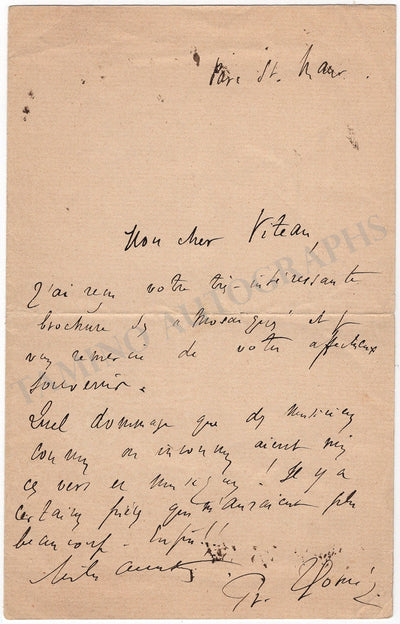 Parc St. Maur.
Mon cher Viteau,
J'ai reçu votre très-intéressante
brochure des "Mosaïques" et je
vous remercie de votre affectueux
souvenir.
Quel dommage que des musiciens
connus ou inconnus aient mis
ces vers en musique ! Il y a
certaines pièces qui m'auraient plu
beaucoup - Enfin !!
TAMINO AUTOGRAPHS